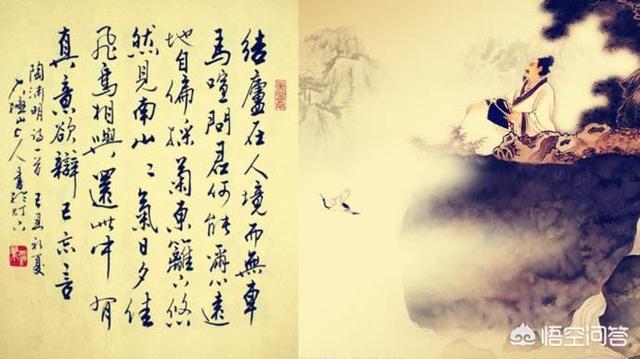 結廬在人境而無車
馬喧問君何能爾心遠
地自偏採菊東籬下悠
然見南山〻氣日夕佳
飛鳥相與還此中有
真意欲辯已忘言
陶渊明詩一首
初夏
悟空问答